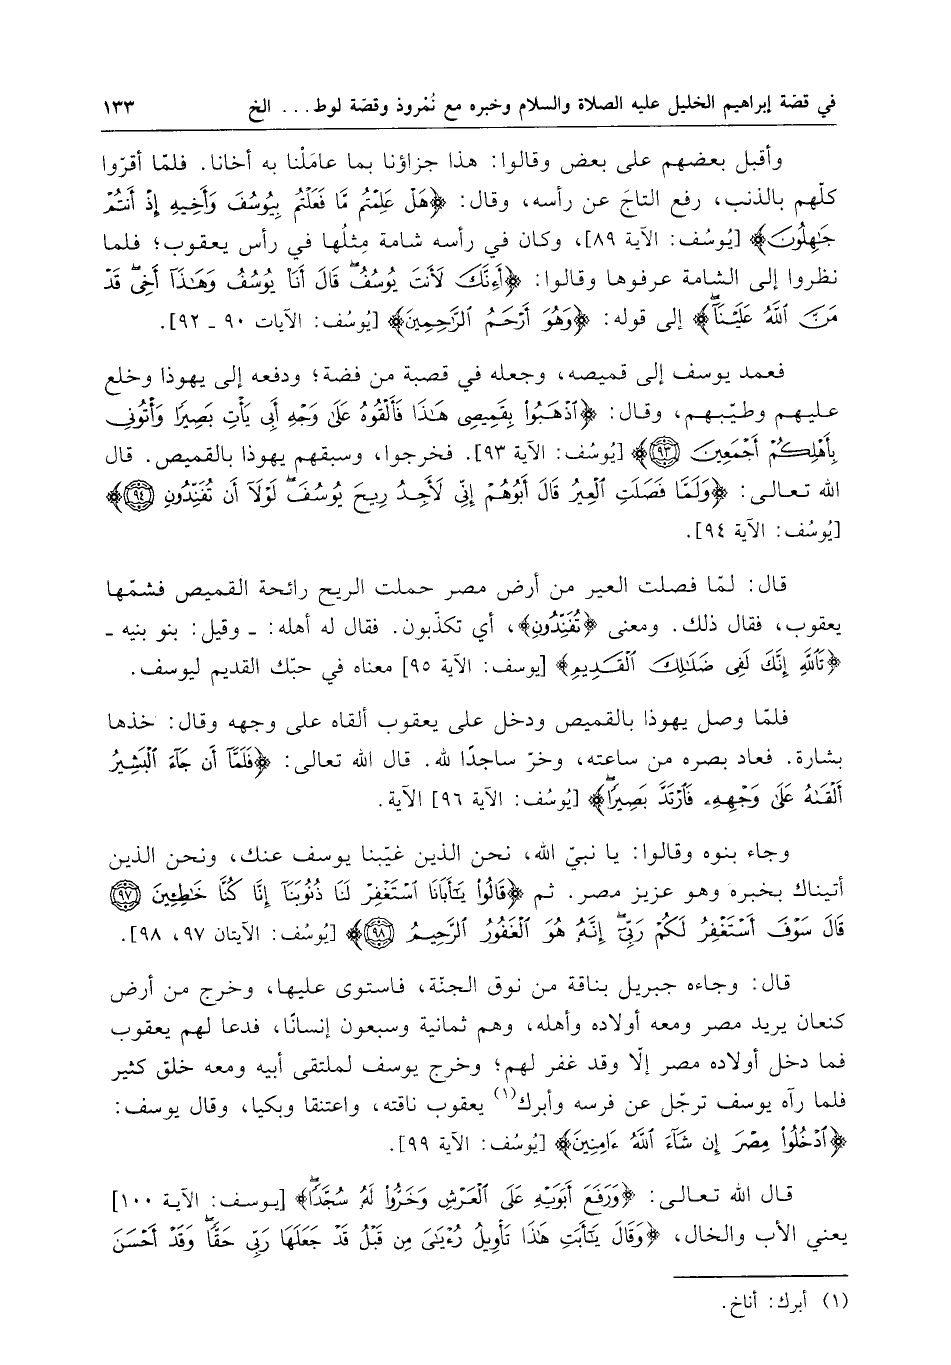 في قصّة إبراهيم الخليل عليه الصلاة والسلام وخبره مع نُمْروذ وقصّة لوط... الخ ١٣٣
وأقبل بعضهم على بعض وقالوا: هذا جزاؤنا بما عامَلْنا به أخانا. فلمّا أقرّوا
كلّهم بالذنب، رفع التاجَ عن رأسه، وقال: ﴿هَلْ عَلِمْتُم مَّا فَعَلْتُم بِيُوسُفَ وَأَخِيهِ إِذْ أَنتُمْ
جَٰهِلُونَ﴾ [يُوسُف: الآية ٨٩]، وكان في رأسه شامة مِثلُها في رأس يعقوب؛ فلما
نظروا إلى الشامة عرفوها وقالوا: ﴿أَءِنَّكَ لَأَنتَ يُوسُفُۖ قَالَ أَنَا۠ يُوسُفُ وَهَٰذَآ أَخِىۖ قَدْ
مَنَّ ٱللَّهُ عَلَيْنَآۖ﴾ إلى قوله: ﴿وَهُوَ أَرْحَمُ ٱلرَّٰحِمِينَ﴾ [يُوسُف: الآيات ٩٠ ـ ٩٢].
فعمد يوسف إلى قميصه، وجعله في قصبة من فضة؛ ودفعه إلى يهوذا وخلع
عليهم وطيّبهم، وقال: ﴿ٱذْهَبُوا۟ بِقَمِيصِى هَٰذَا فَأَلْقُوهُ عَلَىٰ وَجْهِ أَبِى يَأْتِ بَصِيرًا وَأْتُونِى
بِأَهْلِكُمْ أَجْمَعِينَ ٩٣﴾ [يُوسُف: الآية ٩٣]. فخرجوا، وسبقهم يهوذا بالقميص. قال
الله تعالى: ﴿وَلَمَّا فَصَلَتِ ٱلْعِيرُ قَالَ أَبُوهُمْ إِنِّى لَأَجِدُ رِيحَ يُوسُفَۖ لَوْلَآ أَن تُفَنِّدُونِ ٩٤﴾
[يُوسُف: الآية ٩٤].
قال: لمّا فصلت العير من أرض مصر حملت الريح رائحة القميص فشمّها
يعقوب، فقال ذلك. ومعنى ﴿تُفَنِّدُونِ﴾، أي تكذّبون. فقال له أهله: ـ وقيل: بنو بنيه ـ
﴿تَٱللَّهِ إِنَّكَ لَفِى ضَلَٰلِكَ ٱلْقَدِيمِ﴾ [يوسف: الآية ٩٥] معناه في حبّك القديم ليوسف.
فلمّا وصل يهوذا بالقميص ودخل على يعقوب ألقاه على وجهه وقال: خذها
بشارة. فعاد بصره من ساعته، وخرّ ساجدًا لله. قال الله تعالى: ﴿فَلَمَّآ أَن جَآءَ ٱلْبَشِيرُ
أَلْقَىٰهُ عَلَىٰ وَجْهِهِۦ فَٱرْتَدَّ بَصِيرًاۖ﴾ [يُوسُف: الآية ٩٦] الآية.
وجاء بنوه وقالوا: يا نبيّ الله، نحن الذين غيّبنا يوسف عنك، ونحن الذين
أتيناك بخبره وهو عزيز مصر. ثم ﴿قَالُوا۟ يَٰٓأَبَانَا ٱسْتَغْفِرْ لَنَا ذُنُوبَنَآ إِنَّا كُنَّا خَٰطِـِٔينَ ٩٧
قَالَ سَوْفَ أَسْتَغْفِرُ لَكُمْ رَبِّىٓۖ إِنَّهُۥ هُوَ ٱلْغَفُورُ ٱلرَّحِيمُ ٩٨﴾ [يُوسُف: الآيتان ٩٧، ٩٨].
قال: وجاءه جبريل بناقة من نوق الجنّة، فاستوى عليها، وخرج من أرض
كنعان يريد مصر ومعه أولاده وأهله، وهم ثمانية وسبعون إنسانًا، فدعا لهم يعقوب
فما دخل أولاده مصر إلّا وقد غفر لهم؛ وخرج يوسف لملتقى أبيه ومعه خلق كثير
فلما رآه يوسف ترجّل عن فرسه وأبرك(١) يعقوب ناقته، واعتنقا وبكيا، وقال يوسف:
﴿ٱدْخُلُوا۟ مِصْرَ إِن شَآءَ ٱللَّهُ ءَامِنِينَ﴾ [يُوسُف: الآية ٩٩].
قال الله تعالى: ﴿وَرَفَعَ أَبَوَيْهِ عَلَى ٱلْعَرْشِ وَخَرُّوا۟ لَهُۥ سُجَّدًاۖ﴾ [يوسف: الآية ١٠٠]
يعني الأب والخال، ﴿وَقَالَ يَٰٓأَبَتِ هَٰذَا تَأْوِيلُ رُءْيَٰىَ مِن قَبْلُ قَدْ جَعَلَهَا رَبِّى حَقًّاۖ وَقَدْ أَحْسَنَ
(١) أبرك: أناخ.